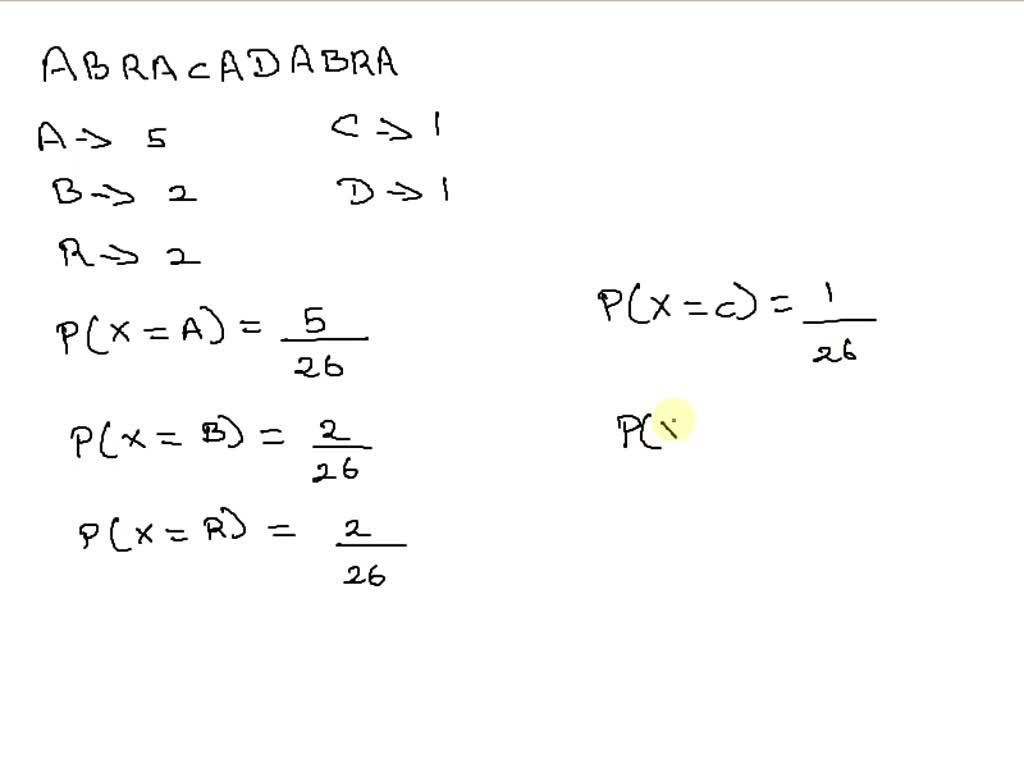 ABRACADABRA
A → 5
C → 1
B → 2
D → 1
R → 2
P(X = A) = 5/26
P(X = C) = 1/26
P(X = B) = 2/26
P(X
P(X = R) = 2/26